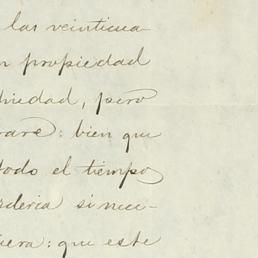 las veinticua-
n propiedad
hiedad, pero
raré: bien que
todo el tiempo
rderia si nue-
uera: que este